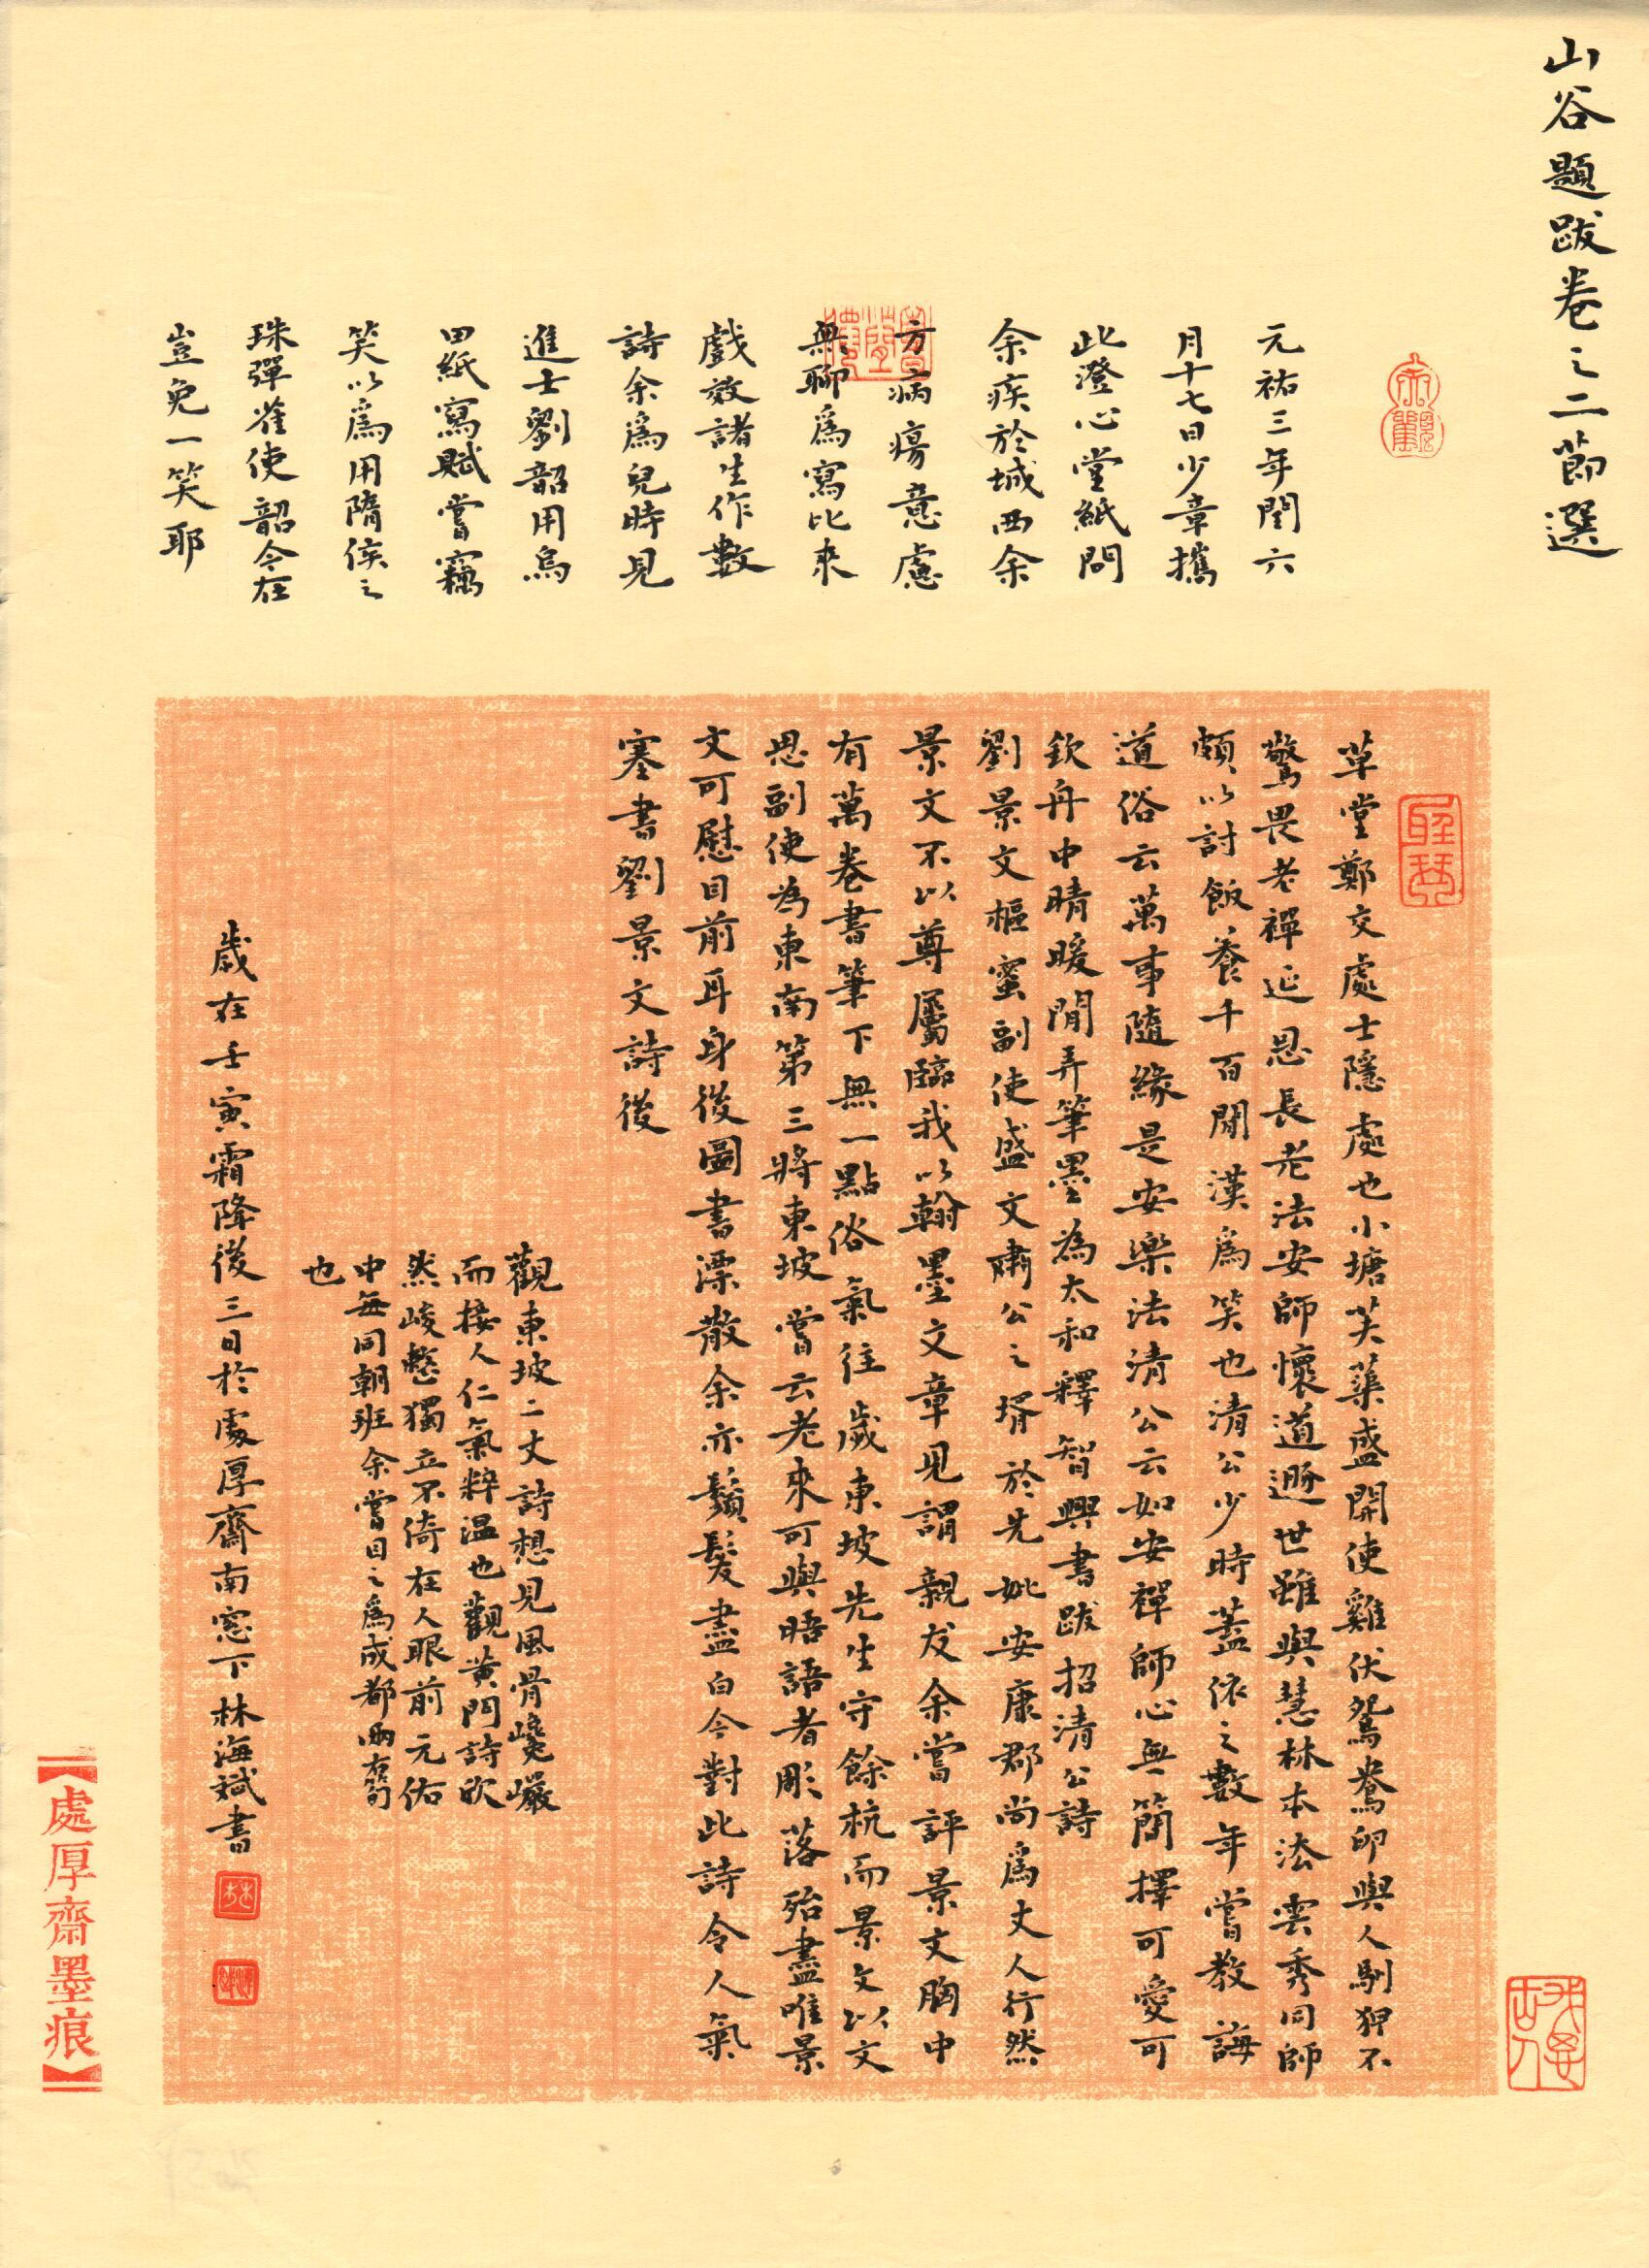 山谷題跋卷之二節選
元祐三年閏六
月十七日少章攜
此澄心堂紙問
余疾於城西余
方病瘍意慮
無聊為寫比來
戲效諸生作數
詩余爲兒時見
進士劉韶用烏
田紙寫賦嘗竊
笑以爲用隋侯之
珠彈雀使韶今在
豈免一笑耶
草堂鄭交處士隱處也小塘芙蕖盛開使雞伏鴛鴦卵與人馴狎不
驚畏老禪延恩長老法安師懷道遯世雖與慧林本法雲秀同師
頗以討飯養千百閒漢爲笑也清公少時蓋依之數年嘗教誨
道俗云萬事隨緣是安樂法清公云如安禪師心無簡擇可愛可
欽舟中晴暖閒弄筆墨為太和釋智興書跋招清公詩
劉景文樞蜜副使盛文肅公之壻於先妣安康郡尚爲丈人行然
景文不以尊屬臨我以翰墨文章見謂親友余嘗評景文胸中
有萬卷書筆下無一點俗氣往歲東坡先生守餘杭而景文以文
思副使為東南第三將東坡嘗云老來可與晤語者彫落殆盡唯景
文可慰目前耳身後圖書漂散余亦鬚髮盡白今對此詩令人氣
塞書劉景文詩後
觀東坡二丈詩想見風骨巉巖
而接人仁氣粹温也觀黃門詩欣
然峻整獨立不倚在人眼前元佑
中每同朝班余嘗目之爲成都兩石筍
也
歲在壬寅霜降後三日於處厚齋南窓下林海斌書
【處厚齋墨痕】